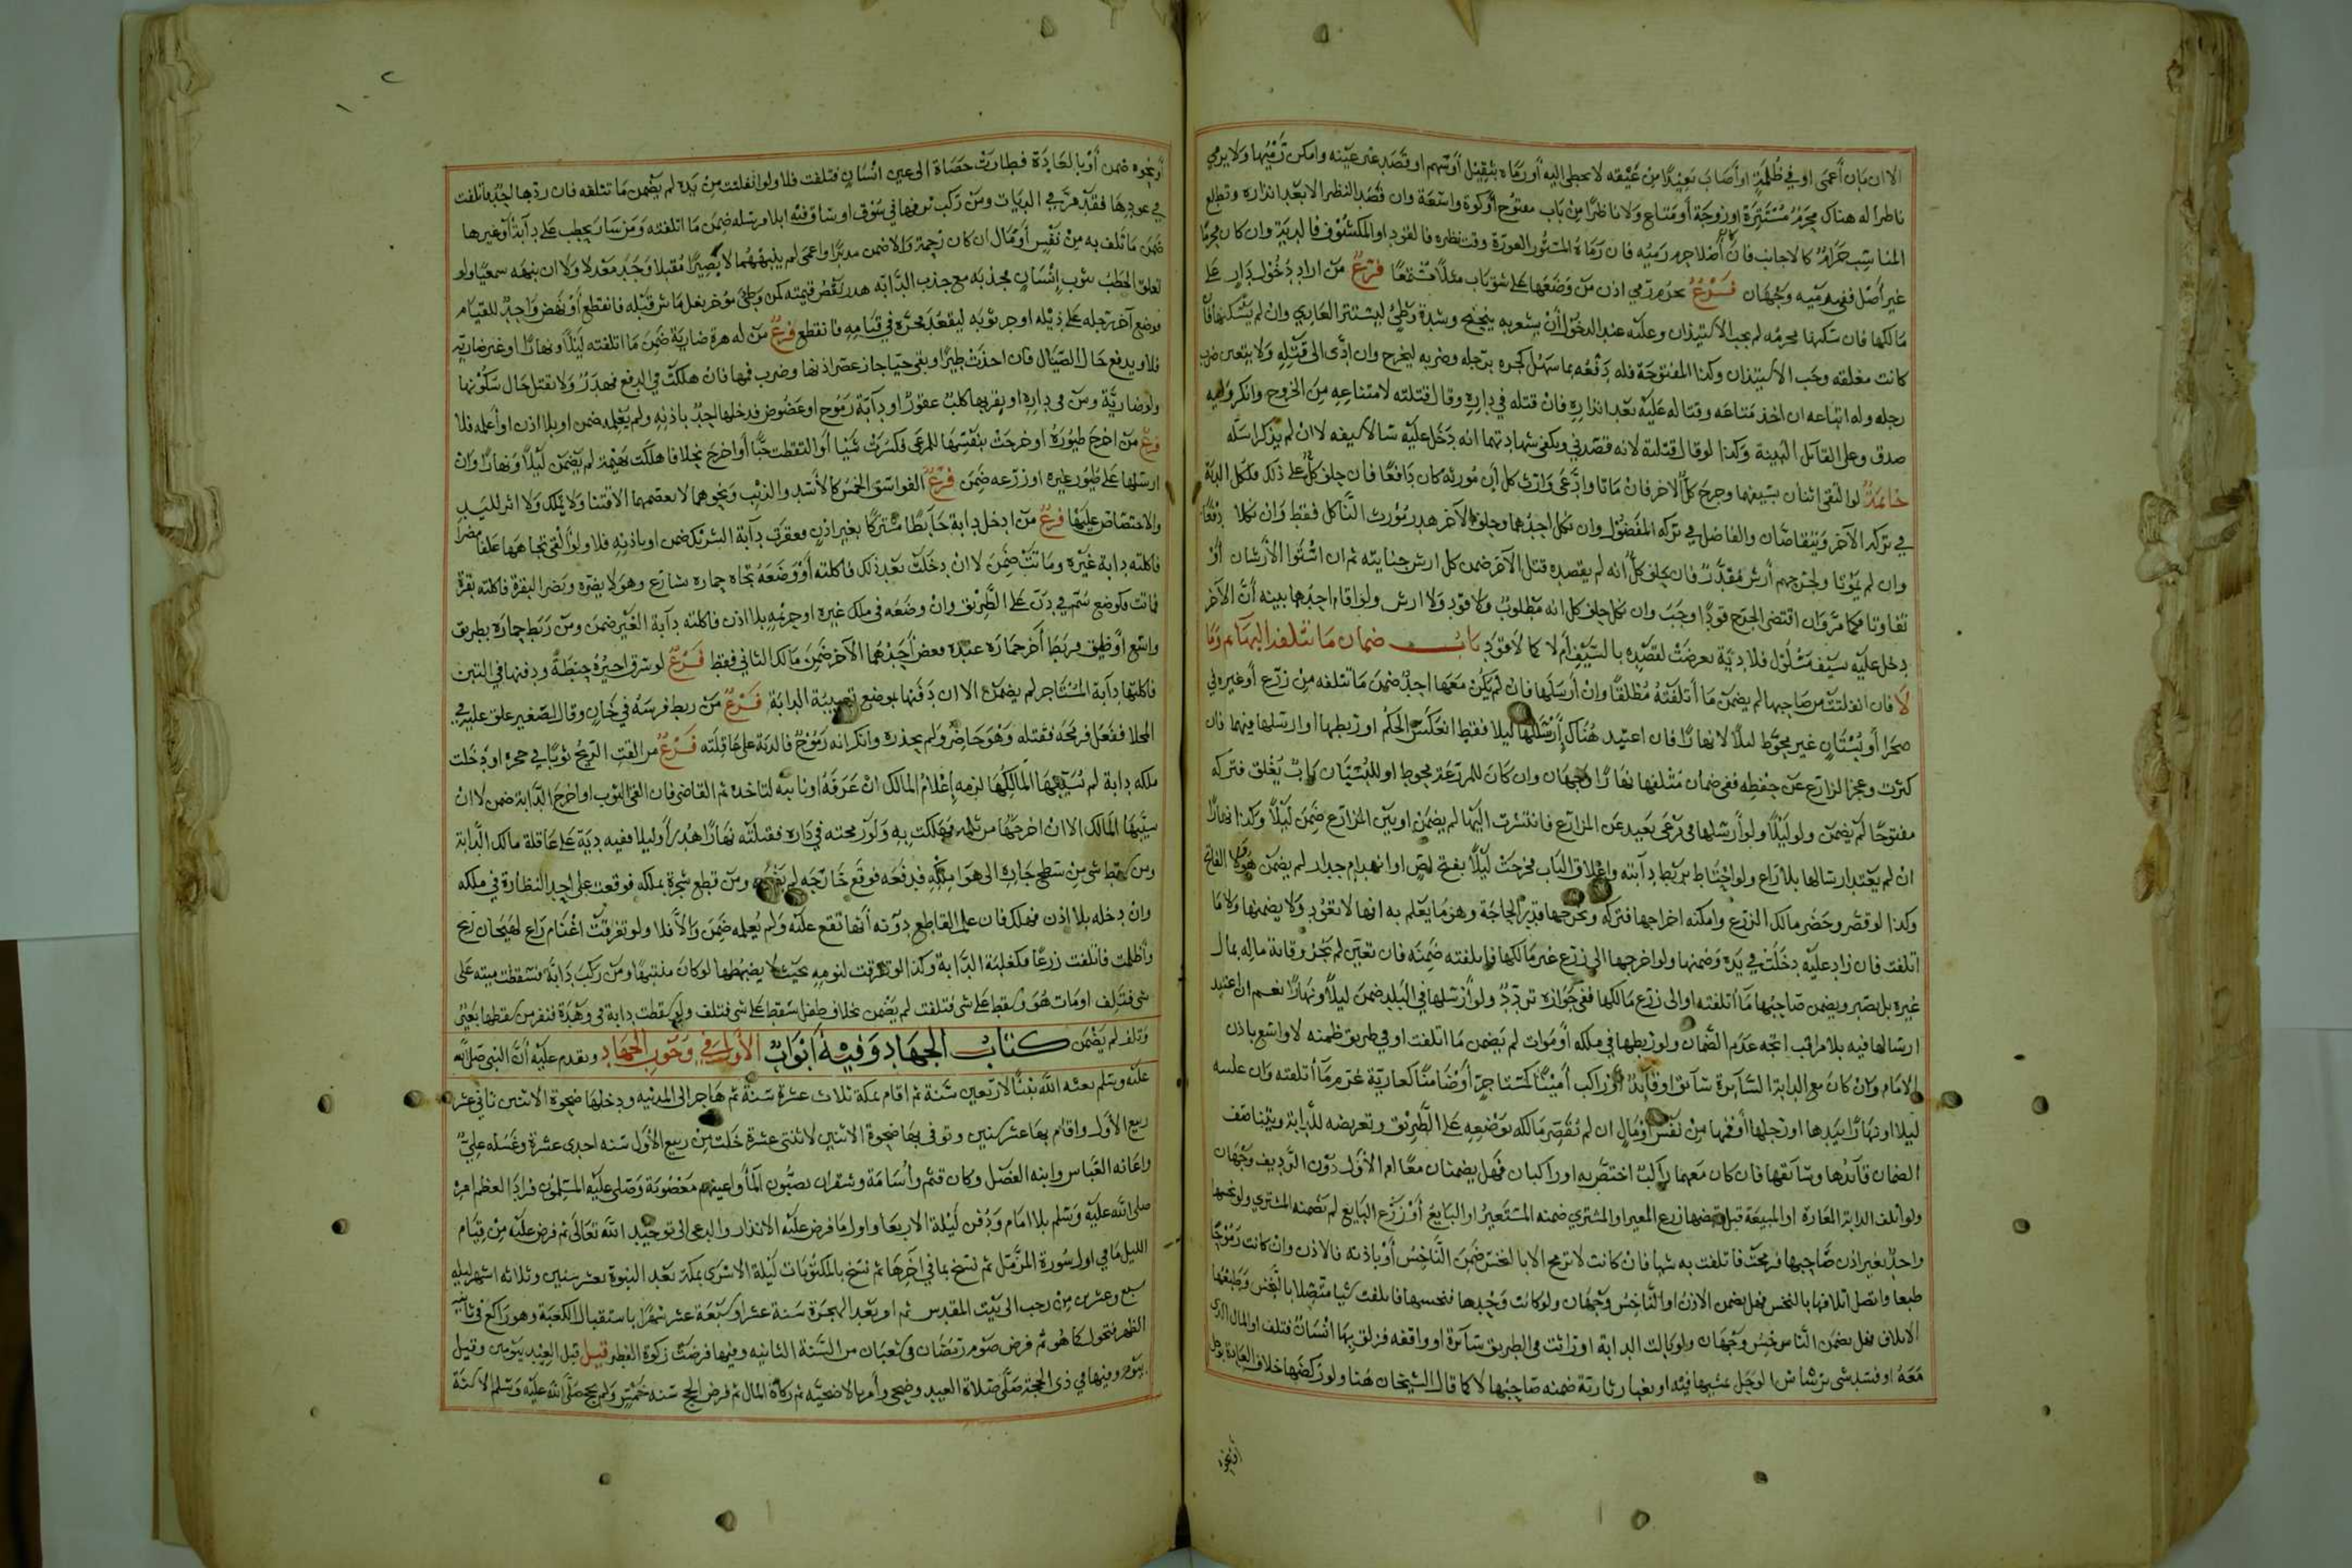 الا ان بان أعمى او في ظلمة او أصاب بعيدا من عينه لا يخطى اليه أو رماه بثقيل أو سهم او قصد غير عينه وامكن رميها ولا يرمي
ناظرا له هناك محرم مستترة او زوجة أو متاع ولا ناظرا من باب مفتوح أو كوة واسعة وان قصد النظر الا بعد انذاره وتطلع
المناسب حرام كالاجانب فان أصلا جرم رميه فان رماه المستور العورة وقت نظره فالقود او المكشوف فالدية وان كان محرما
غير أصل ففي رميه وجهان فرع يحرم رمي اذن من وضعها على شق باب مثلا متسمعا فرع من اراد دخول دار على
مالكها فان سكنها محرمه لم يجب الاستيذان وعليه عند الدخول أن يشعر به بنحنح وشدة وطئ ليستتر العاري وان لم يسكنها فان
كانت مغلقه وجب الاستيذان وكذا المفتوحة فله دفعه بما سهل كجره برجله وضربه ليخرج وان ادى الى قتله ولا يتعين ضرب
رجله وله اتباعه ان اخذ متاعه وقتاله عليه بعد انذاره فان قتله في داره وقال قتلته لامتناعه من الخروج وانكر وليه
صدق وعلى القاتل البينة وكذا لو قال قتلته لانه قصدني ويكفي شهادتهما انه دخل عليه شالا سيفه لا ان لم يذكرا سله
خاتمة لو التقى اثنان بسيفهما وجرح كل الاخر فان ماتا وادعى وارث كل أن مورثه كان دافعا فان حلف كل على ذلك فلكل الدية
في تركة الآخر ويتقاصان والفاضل في تركة المفضول وان نكل احدهما وحلف الآخر هدر مورث الناكل فقط وان نكلا دفعا
وان لم يموتا ولجرحهم أرش مقدر فان حلف كل أنه لم يقصده قتل الآخر ضمن كل ارش جنايته ثم ان استوا الأرشان أو
تفاوتا فكما مر وان اقتضى الجرح قودا وجب وان نكل حلف كل انه مظلوم ولا قود ولا ارش ولو اقام احدهما بينه أن الآخر
دخل عليه سيف مسلول فلا دية تعرضت لقصده بالسيف أم لا كما لا قود باب ضمان ما تتلفه البهائم وما
لا فان انفلتت من صاحبها لم يضمن ما أتلفته مطلقا وان أرسلها فان لم يكن معها احد ضمن ما تتلفه من زرع أو غيره في
صحرا أو بستان غير محوط ليلا لا نهارا فان اعتيد هناك إرسالها ليلا فقط انعكس الحكم او ربطها او ارسلها فيهما فان
كثرت وعجز الزارع عن حفظه ففي ضمان متلفها نهارا وجهان وان كان للمزرعة محوط او للبستان باب يغلق فتركه
مفتوحا لم يضمن ولو ليلا ولو أرسلها في مرعى بعيد عن المزارع فانتشرت اليها لم يضمن او بين المزارع ضمن ليلا وكذا نهارا
ان لم يعتد ارسالها بلا راع ولو احتاط بربط دابته واغلاق الباب فخرجت ليلا بفتح لص او انهدام جدار لم يضمن هو ولا الفاتح
وكذا لو قصر وحضر مالك الزرع وامكنه اخراجها فتركه ويخرجها قدر الحاجة وهو ما يعلم به انها لا تعود ولا يضمنها ولا ما
اتلفت فان زاد عليه دخلت في يده وضمنها ولو اخرجها الى زرع غير مالكها فاتلفته ضمنه فان تعين لم يجز وقاية ماله بمال
غيره بل يصبر ويضمن صاحبها ما أتلفته او الى زرع مالكها ففي جوازه تردد ولو أرسلها في البلد ضمن ليلا ونهارا نعم ان اعتيد
ارسالها فيه بلا مراقب اتجه عدم الضمان ولو ربطها في ملكه أو موات لم يضمن ما اتلفت او في طريق ظمنه لا واسع باذن
الامام وان كان مع الدابة السائرة سائق او قائد أو راكب أمينا كمستاجر أو ضامنا كعارية غرم ما أتلفته وان علبه
ليلا او نهارا بيدها او رجلها أو فمها من نفس أو مال ان لم يقصر مالكه بوضعه على الطريق وتعريضه للدابة ويتناصف
الضمان قائدها وسائقها فان كان معهما راكب اختص به او راكبان فهل يضمنان معا ام الأول دون الرديف وجهان
ولو أتلف الدابة المعارة او المبيعة قبل قبضها زرع المعير او المشتري ضمنه المستعير او البايع أو زرع البايع لم يضمنه المشتري ولو نخسها
واحد بغير اذن صاحبها فرمحت فاتلفت به شيا فان كانت لا ترمح الا بالنخس ضمن الناخس أو باذنه فالاذن وان كانت رموحا
طبعا واتصل اتلافها بالنخس فهل يضمن الاذن او الناخس وجهان ولو كانت وحدها فنخسها فاتلفت شيا متصلا بالنخس وطبعها
الاتلاف فهل يضمن الناخس وجهان ولو بالت الدابة او راثت في الطريق سائرة او واقفه فزلق بها انسان فتلف او المال الذي
معه او فسد شي برشاش الوحل بمشيها فيه او بغبار ثارته ضمنه صاحبها لا كما قال الشيخان هنا ولو ركضها خلاف العادة بوحل
أو نحوه
أو نحوه ضمن أو بالعادة فطارت حصاة الى عين انسان فتلفت فلا ولو انفلتت من يده لم يضمن ما تتلفه فان ردها احد فاتلفت
في عودها فقد مر في الديات ومن ركب نزوقها في سوق او ساق فيه ابلا مرسله ضمن ما اتلفته ومن سار بحطب على دآبة أو غيرها
ضمن ما تلف به من نفس أو مال ان كان زحمة والا ضمن مدبرا واعمى لم ينبههما لا بصيرا مقبلا وجد معدلا ولا ان نبهه سمعيا ولو
تعلق الحطب بثوب إنسان فجذبه مع جذب الدابه هدر نقص قيمته كمن وطئ مؤخر نعل ماش قبله فانقطع أو نهض واحد للقيام
فوضع آخر رجله على ذيله او جر ثوبه ليقعد فجره في قيامه فانقطع فرع من له هرة ضارية ضمن ما اتلفته ليلا ونهارا او غير ضارية
فلا ويدفع حال الصيال فان اخذت طيرا وبقي حيا جاز عصر اذنها وضرب فمها فان هلكت في الدفع فهدر ولا تقتل حال سكونها
ولو ضارية ومن في داره او بقربها كلب عقور او دآبة رموح او عضوض فدخلها احد باذنه ولم يعلمه ضمن او بلا اذن او أعلمه فلا
فرع من اخرج طيوره او خرجت بنفسها للمرعى فكسرت شيا أو التقطت حبا أو اخرج نحلا فاهلكت بهيمة لم يضمن ليلا ونهارا وان
ارسلها على طيور غيره او زرعه ضمن فرع الفواسق الخمس كالأسد والذئب ونحوهما لا يعصمها الاقتنا ولا يملك ولا اثر لليد
والاختصاص عليها فرع من ادخل دابة حائطا مشتركا بغير اذن فعقرت دآبة الشريك ضمن او باذنه فلا ولو ألقى تجاهها علفا مضرا
فاكلته دابة غيره وماتت ضمن لا ان دخلت بعد ذلك فاكلته أو وضعه تجاه حماره بشارع وهو لا يضره ويضر البقرة فاكلته بقرة
فماتت فكوضع سم في دن على الطريق وان وضعه في ملك غيره او حرثه بلا اذن فاكلته دآبة الغير ضمن ومن ربط حماره بطريق
واسع أو ضيق فربط آخر حماره عنده فعض أحدهما الآخر ضمن مالك الثاني فقط فرع لو سرق اجيره حنطة ودفنها في التبن
فاكلتها دآبة المستاجر لم يضمن الا ان دفنها بموضع تعبيبة الدابة فرع من ربط فرسه في خان وقال لصغير علق عليه في
المخلا ففعل فرمحه فقتله وهو حاضر ولم يحذره وانكر انه رموح فالدية على عاقلته فرع من القت الريح ثوبا في حجره او دخلت
ملكه دابة لم يسيبها المالك لزمه إعلام المالك ان عرفه او نائبه لتاخذه ثم القاضي فان القى الثوب او اخرج الدابة ضمن لا ان
سيبها المالك الا ان اخرجها من ثلمه فهلكت به ولو رمحته في داره فقتلته نهارا هدر أو ليلا ففيه دية على عاقلة مالك الدابة
ومن سقط شي من سطح جاره الى هوا ملكه فدفعه فوقع خارجه لم يضمن ومن قطع شجرة بملكه فوقعت على احد النظارة في ملكه
وان دخله بلا اذن فهلك فان علم القاطع دونه أنها تقع عليه ولم يعلمه ضمن والا فلا ولو تفرقت اغنام راع لهيجان ريح
واظلمت فاتلفت زرعا فكغلبة الدابة وكذا لو تفرقت لنومه بحيث لا يضبطها لو كان منتبها ومن ركب دابة فسقطت ميته على
شي فتلف او مات هو وسقط على شي فتلفت لم يضمن بخلاف طفل سقط على شي فتلف ولو سقطت دابة في وهدة فنفر من سقطها بعير
وتلف لم يضمن كتاب الجهاد وفيه أبواب الأول في وجوب الجهاد وتقدم عليه أن النبي صلى الله
عليه وسلم بعثه الله نبيا لاربعين سنة ثم اقام بمكة ثلاث عشرة سنة ثم هاجر الى المدينه ودخلها ضحوة الاثنين ثاني عشر
ربيع الأول واقام بها عشر سنين وتوفى بها ضحوة الاثنين لاثنتي عشرة خلت من ربيع الأول سنه احدى عشرة وغسله علي
واعانه العباس وابنه الفضل وكان قثم وأسامة وشقران يصبون الما وأعينهم معصوبة وصلى عليه المسلمون فرادا لعظم امره
صلى الله عليه وسلم بلا امام ودفن ليلة الاربعا واول ما فرض عليه الانذار والدعى الى توحيد الله تعالى ثم فرض عليه من قيام
الليل ما في اول سورة المزمل ثم نسخ بما في آخرها ثم نسخ بالمكتوبات ليلة الاسرى بمكة بعد النبوة بعشر سنين وثلاثه اشهر ليلة
سبع وعشرين من رجب الى بيت المقدس ثم او بعد الهجرة سنة عشر او سبعة عشر شهرا باستقبال الكعبة وهو راكع في ثانية
الظهر فتحول كما هو ثم فرض صوم رمضان في شعبان من السنة الثانيه وفيها فرضت زكوة الفطر قيل قبل العيد بيومين وقيل
بيوم وفيها في ذى الحجة صلى صلاة العيد وضحى وأمر بالاضحية ثم زكاة المال ثم فرض الحج سنه خمس ولم يحج صلى الله عليه وسلم الا سنة